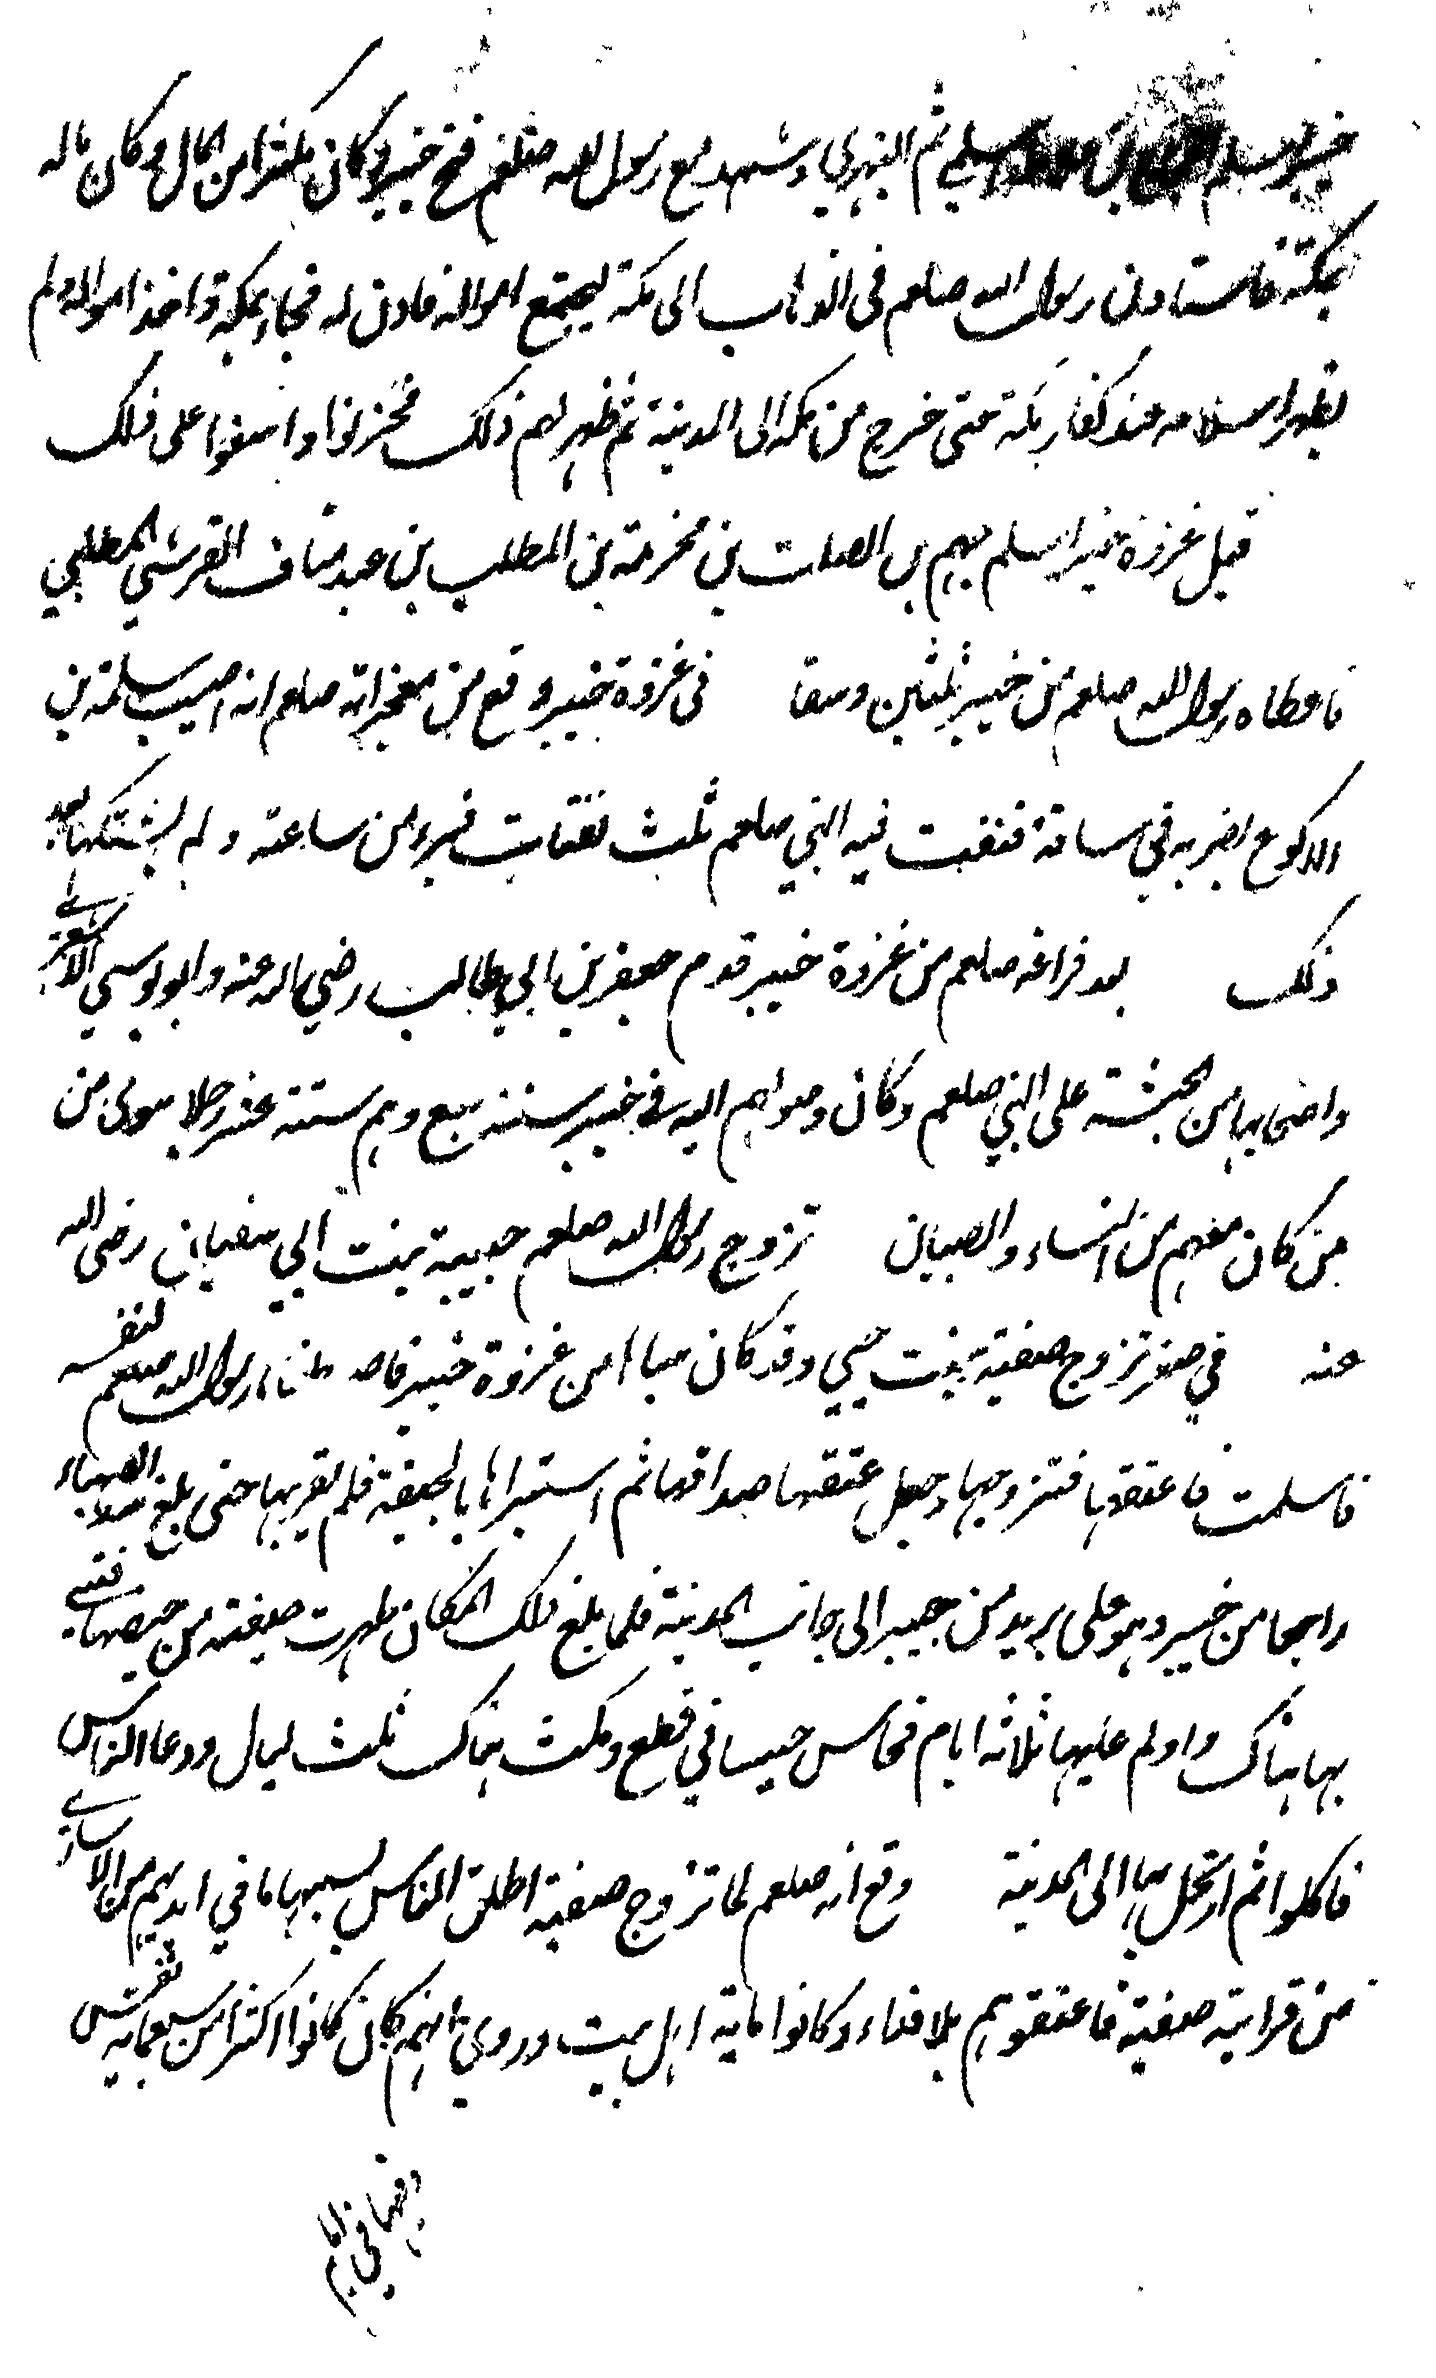 خيبر اسلم السلمي ثم البهزي وشهد مع رسول الله صلعم فتح خيبر وكان مكثرا من المال وكان ماله
بمكة فاستاذن رسول الله صلعم في الذهاب الى مكة ليجتمع امواله فاذن له فجاء بمكة واخذ امواله ولم
يظهر اسلامه عند كفار مكة حتى خرج من مكة الى المدينة ثم ظهر لهم ذلك فحزنوا واسفوا على ذلك
قبل غزوة خيبر اسلم جهيم بن الصلت بن مخرمة بن المطلب بن عبد مناف القرشي المطلبي
فاعطاه رسول الله صلعم من خيبر ثلثين وسقا في غزوة خيبر وقع من معجزاته صلعم انه اصيب سلمة بن
الاكوع بضربة في ساقه فنفث فيه النبي صلعم ثلث نفثات فبرء من ساعته ولم يشتكها بعد
ذلك بعد فراغه صلعم من غزوة خيبر قدم جعفر بن ابي طالب رضي الله عنه وابو موسى الاشعري
واصحابهما من الحبشة على النبي صلعم وكان وصولهم اليه في خيبر سنة سبع وهم ستة عشر رجلا سوى من
من كان معهم من النساء والصبيان تزوج رسول الله صلعم حبيبة بنت ابي سفيان رضى الله
عنه في صفر تزوج صفية بنت حيي وقد كان سباها من غزوة خيبر فاصطفاها رسول الله صلعم لنفسه
فاسلمت فاعتقها فتزوجها وجعل عتقها صداقها ثم استبراها بالحيضة فلم يقربها حتى بلغ الصهباء
راجعا من خيبر وهو على بريد من خيبر الى جانب المدينة فلما بلغ ذلك المكان طهرت صفية من حيضها فبنى
بها هناك واولم عليها ثلاثة ايام فحاس حيسا في قطع ومكث هناك ثلث ليال ودعا الناس
فاكلوا ثم ارتحل بها الى المدينة وقع انه صلعم لما تزوج صفية اطلق الناس بسببها ما في ايديهم من الاسارى
من قرابة صفية فاعتقوهم بلا فداء وكانوا ماية اهل بيت وروي انهم كان كانوا اكثر من سبعماية نفس